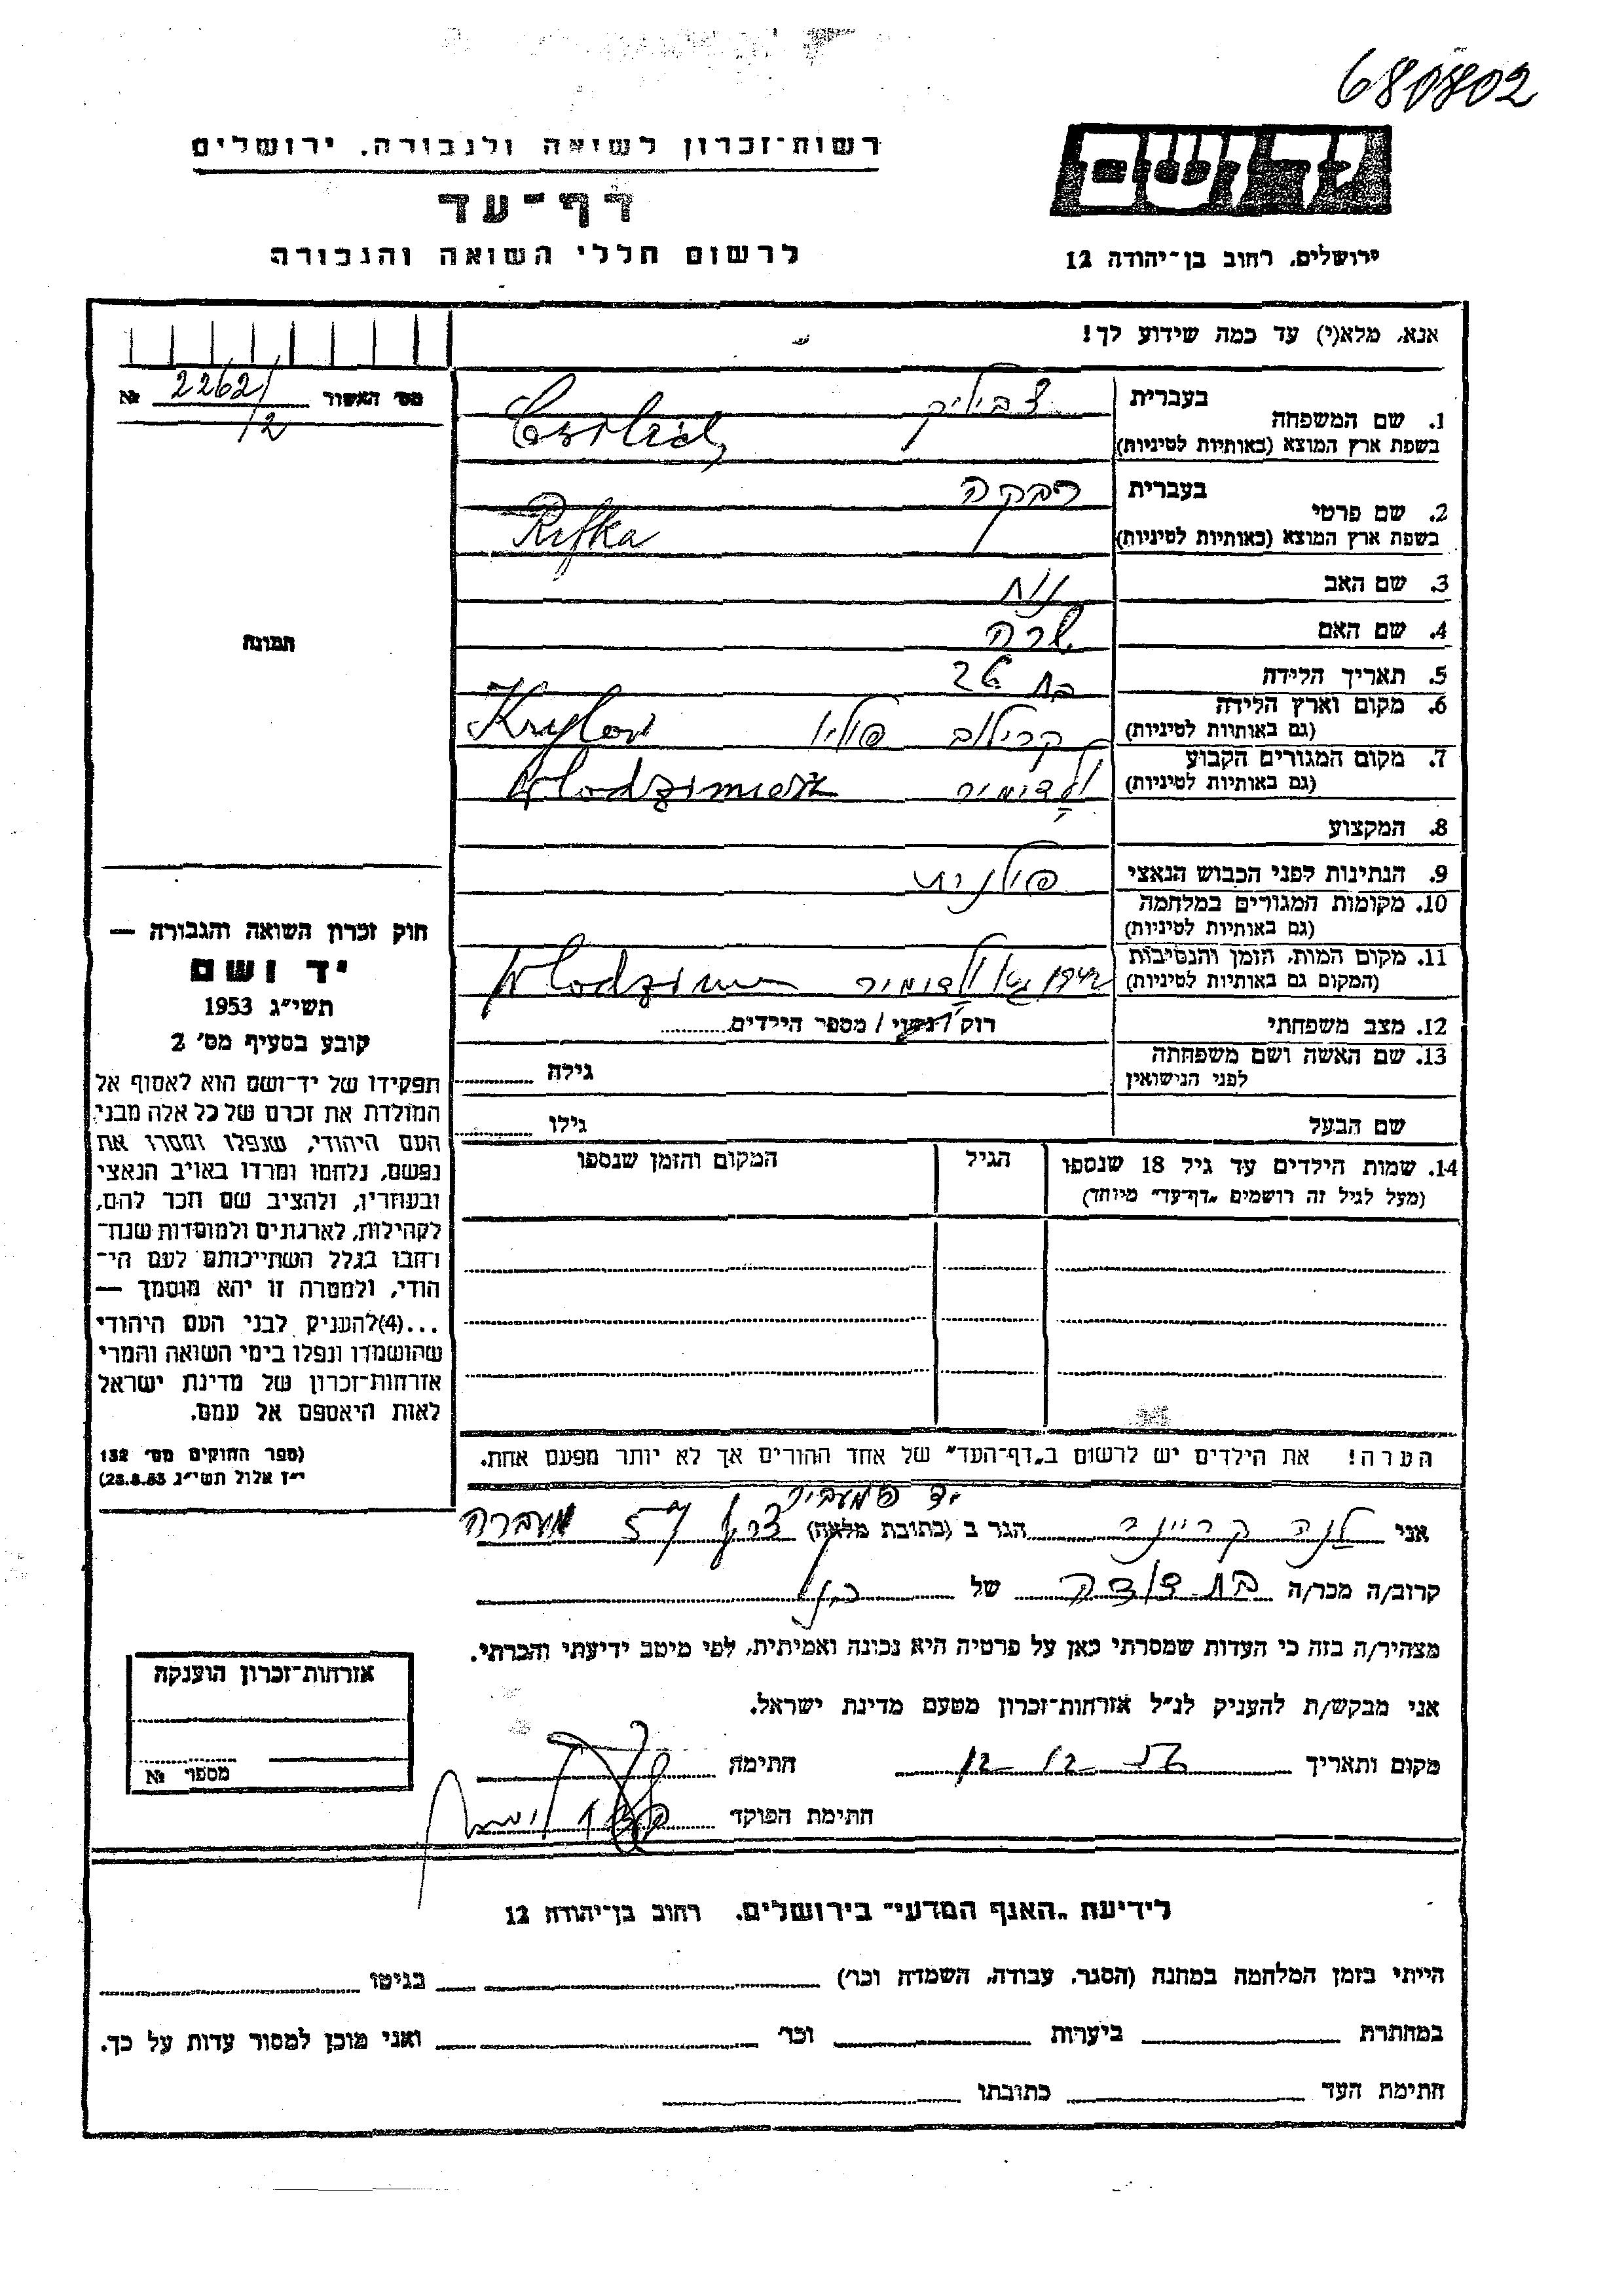 680802
יד ושם
רשות-זכרון לשואה ולגבורה, ירושלים
דף-עד
לרשום חללי השואה והגבורה
ירושלים, רחוב בן-יהודה 12
אנא, מלא(י) עד כמה שידוע לך!
מס' האשור 2262/ №
12
1. שם המשפחה
בעברית צביליק
בשפת ארץ המוצא (באותיות לטיניות)
2. שם פרטי
בעברית רבקה
בשפת ארץ המוצא (באותיות לטיניות) Rifka
3. שם האב נח
4. שם האם שרה
תמונה
5. תאריך הלידה בת 26
6. מקום וארץ הלידה
(גם באותיות לטיניות) קרילוב פולין Krylow
7. מקום המגורים הקבוע
(גם באותיות לטיניות) ולדימיר Wlodzimierz
8. המקצוע
9. הנתינות לפני הכבוש הנאצי פולנית
10. מקומות המגורים במלחמה
(גם באותיות לטיניות)
11. מקום המות, הזמן והנסיבות
(המקום גם באותיות לטיניות) ולדימיר Wlodzimierz
12. מצב משפחתי רוק / נשוי / מספר הילדים
13. שם האשה ושם משפחתה
לפני הנישואין
גילה
שם הבעל גילו
14. שמות הילדים עד גיל 18 שנספו
(מעל לגיל זה רושמים "דף-עד" מיוחד)
הגיל
המקום והזמן שנספו
חוק זכרון השואה והגבורה —
יד ושם
תשי"ג 1953
קובע בסעיף מס' 2
תפקידו של יד-ושם הוא לאסוף אל
המולדת את זכרם של כל אלה מבני
העם היהודי, שנפלו ומסרו את
נפשם, נלחמו ומרדו באויב הנאצי
ובעוזריו, ולהציב שם וזכר להם,
לקהילות, לארגונים ולמוסדות שנח-
רחבו בגלל השתייכותם לעם הי-
הודי, ולמטרה זו יהא מוסמך —
...(4)להעניק לבני העם היהודי
שהושמדו ונפלו בימי השואה והמרי
אזרחות-זכרון של מדינת ישראל
לאות היאספם אל עמם.
(ספר החוקים מס' 132
י"ז אלול תשי"ג 28.8.53)
הערה! את הילדים יש לרשום ב"דף-העד" של אחד ההורים אך לא יותר מפעם אחת.
אני לנה קריינר הגר ב (כתובת מלאה) 57 מעברה
קרוב/ה מכר/ה בת דודה של
מצהיר/ה בזה כי העדות שמסרתי כאן על פרטיה היא נכונה ואמיתית, לפי מיטב ידיעתי והכרתי.
אני מבקש/ת להעניק לנ"ל אזרחות-זכרון מטעם מדינת ישראל.
מקום ותאריך חתימה
חתימת הפוקד
אזרחות-זכרון הוענקה
מספר №
לידיעת "האגף המדעי" בירושלים, רחוב בן-יהודה 12
הייתי בזמן המלחמה במחנה (הסגר, עבודה, השמדה וכו') בגיטו
במחתרת ביערות וכו' ואני מוכן למסור עדות על כך.
חתימת העד כתובתו